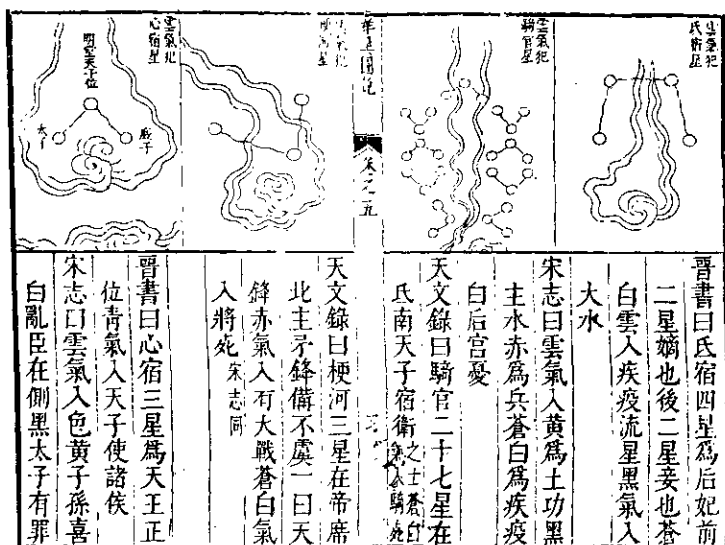 雲氣犯
氐宿星
雲氣犯
騎官星
卷之五
雲氣犯
心宿星
明堂天子位
太子
庶子
晋書曰氐宿四星爲后妃前
二星嫡也後二星妾也蒼
白雲入疾疫流星黑氣入
大水
宋志曰雲氣入黃爲土功黑
主水赤爲兵蒼白爲疾疫
白后宫憂
天文錄曰騎官二十七星在
氐南天子宿衛之士蒼白
氣入騎死
天文錄曰梗河三星在帝席
北主矛鋒備不虞一曰天
鋒赤氣入有大戰蒼白氣
入將死宋志同
晋書曰心宿三星爲天王正
位青氣入天子使諸侯
宋志曰雲氣入色黃子孫喜
白亂臣在側黑太子有罪